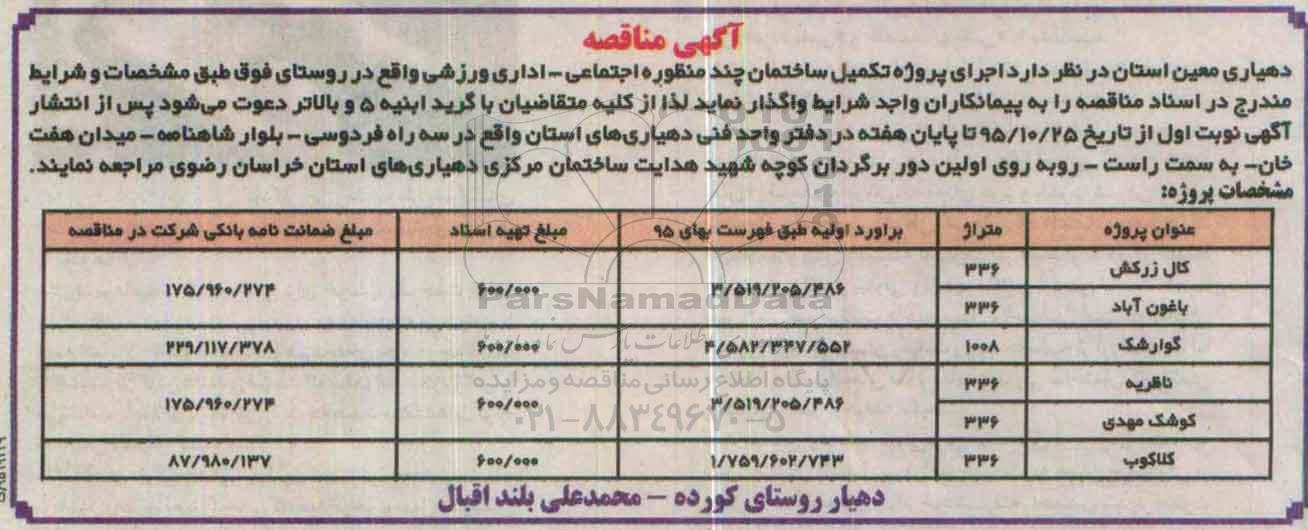 آگهی مناقصه
دهیاری معین استان در نظر دارد اجرای پروژه تکمیل ساختمان چند منظوره اجتماعی - اداری ورزشی واقع در روستای فوق طبق مشخصات و شرایط
مندرج در اسناد مناقصه را به پیمانکاران واجد شرایط واگذار نماید لذا از کلیه متقاضیان با گرید ابنیه ۵ و بالاتر دعوت می‌شود پس از انتشار
آگهی نوبت اول از تاریخ ۹۵/۱۰/۲۵ تا پایان هفته در دفتر واحد فنی دهیاری‌های استان واقع در سه راه فردوسی - بلوار شاهنامه - میدان هفت
خان- به سمت راست - روبه روی اولین دور برگردان کوچه شهید هدایت ساختمان مرکزی دهیاری‌های استان خراسان رضوی مراجعه نمایند.
مشخصات پروژه:
عنوان پروژه متراژ براورد اولیه طبق فهرست بهای ۹۵ مبلغ تهیه اسناد مبلغ ضمانت نامه بانکی شرکت در مناقصه
کال زرکش ۳۳۶
۳/۵۱۹/۲۰۵/۴۸۶ ۶۰۰/۰۰۰ ۱۷۵/۹۶۰/۲۷۴
باغون آباد ۳۳۶
گوارشک ۱۰۰۸ ۴/۵۸۲/۳۴۷/۵۵۲ ۶۰۰/۰۰۰ ۲۲۹/۱۱۷/۳۷۸
ناظریه ۳۳۶
۳/۵۱۹/۲۰۵/۴۸۶ ۶۰۰/۰۰۰ ۱۷۵/۹۶۰/۲۷۴
کوشک مهدی ۳۳۶
کلاکوب ۳۳۶ ۱/۷۵۹/۶۰۲/۷۴۳ ۶۰۰/۰۰۰ ۸۷/۹۸۰/۱۳۷
دهیار روستای کورده - محمدعلی بلند اقبال
ParsNamadData
پایگاه اطلاع رسانی مناقصه و مزایده
۰۲۱-۸۸۳۴۹۶۷۰-۵